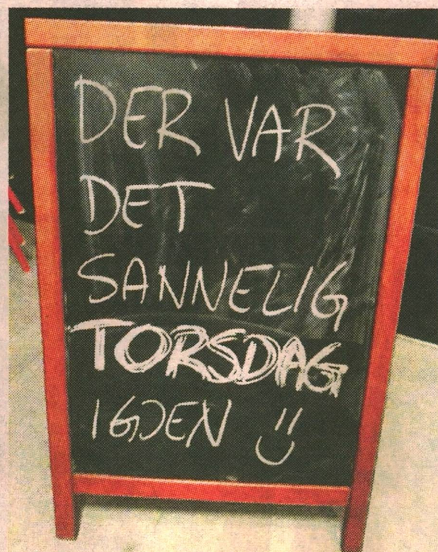 DER VAR
DET
SANNELIG
TORSDAG
IGJEN